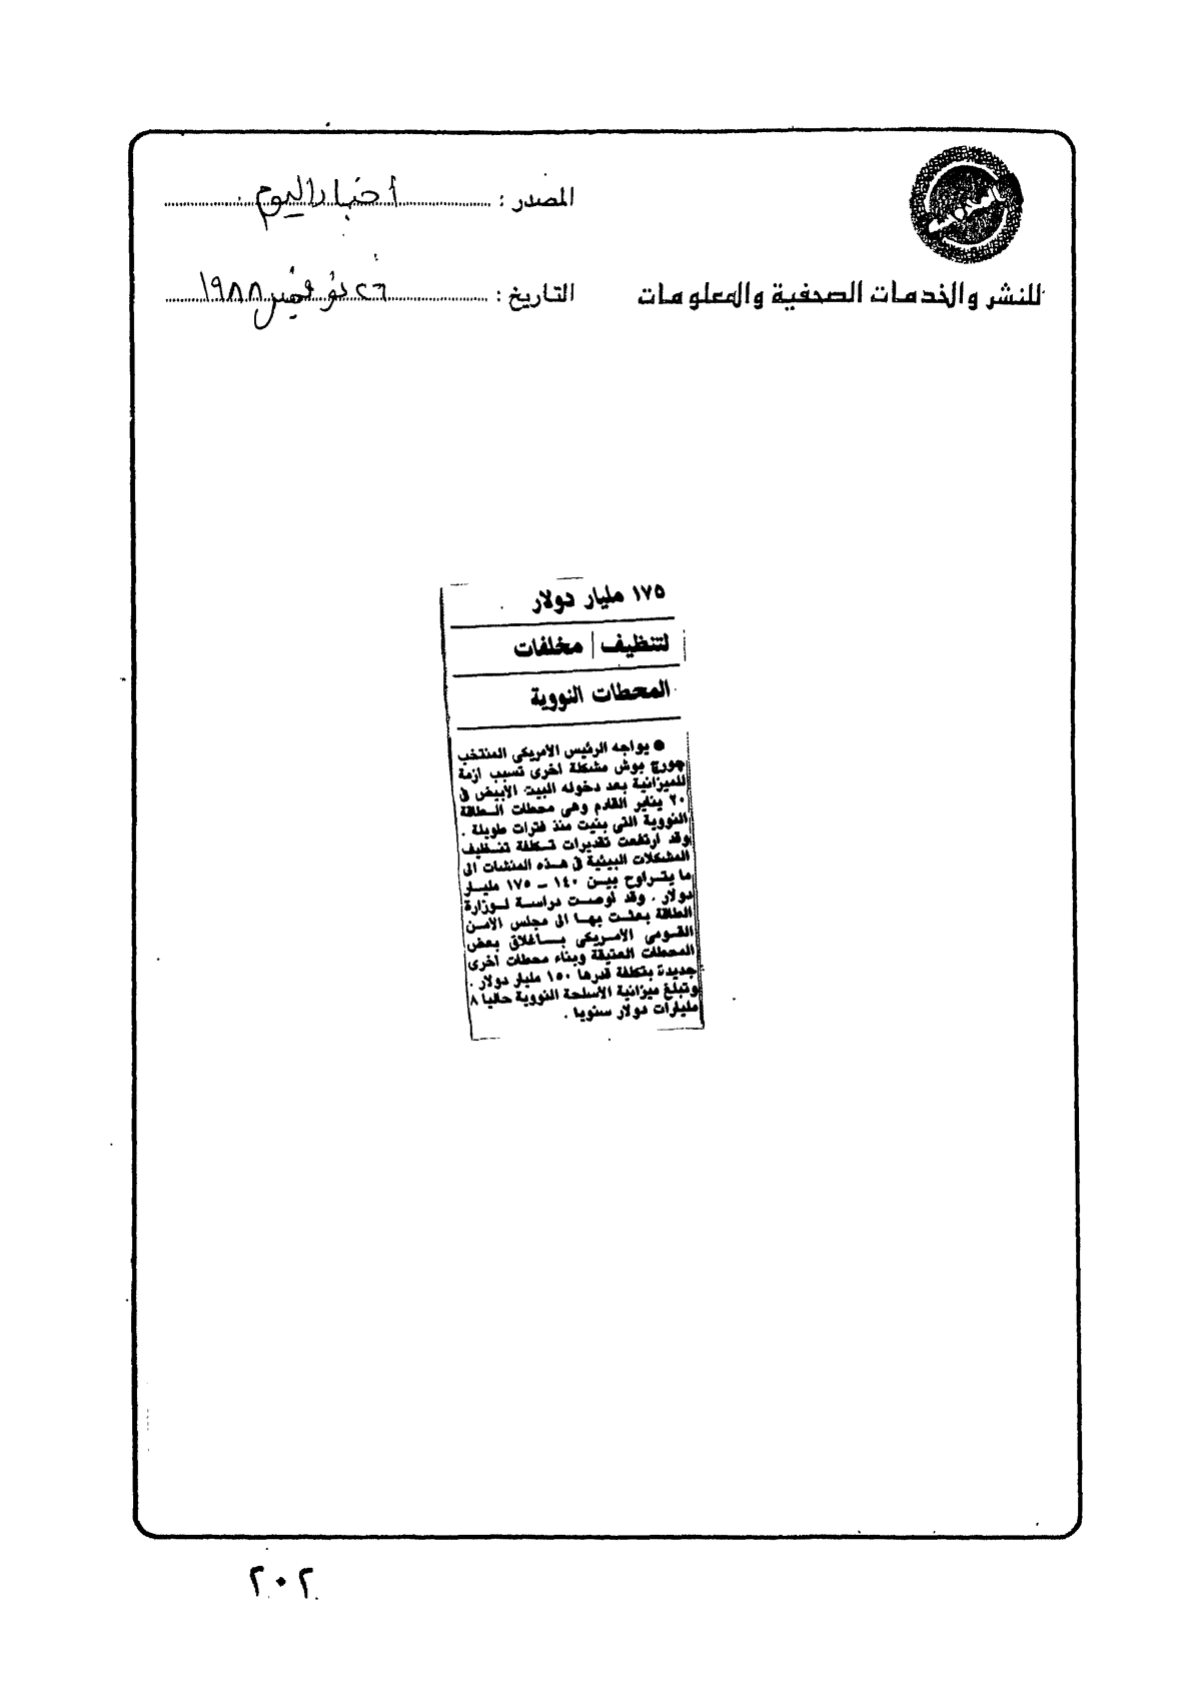 المصدر : أخبار اليوم
للنشر والخدمات الصحفية والمعلومات
التاريخ : ٢٦ نوفمبر ١٩٨٨
١٧٥ مليار دولار
لتنظيف مخلفات
المحطات النووية
● يواجه الرئيس الأمريكى المنتخب
جورج بوش مشكلة اخرى تسبب ازمة
للميزانية بعد دخوله البيت الأبيض فى
٢٠ يناير القادم وهى محطات الطاقة
النووية التى بنيت منذ فترات طويلة .
وقد ارتفعت تقديرات تكلفة تنظيف
المشكلات البيئية فى هذه المنشات الى
ما يتراوح بين ١٤٠ ــ ١٧٥ مليار
دولار . وقد اوصت دراسة لوزارة
الطاقة بعثت بها الى مجلس الأمن
القومى الأمريكى باغلاق بعض
المحطات العتيقة وبناء محطات اخرى
جديدة بتكلفة قدرها ١٥٠ مليار دولار .
وتبلغ ميزانية الأسلحة النووية حاليا ٨
مليارات دولار سنويا .
٢٠٢